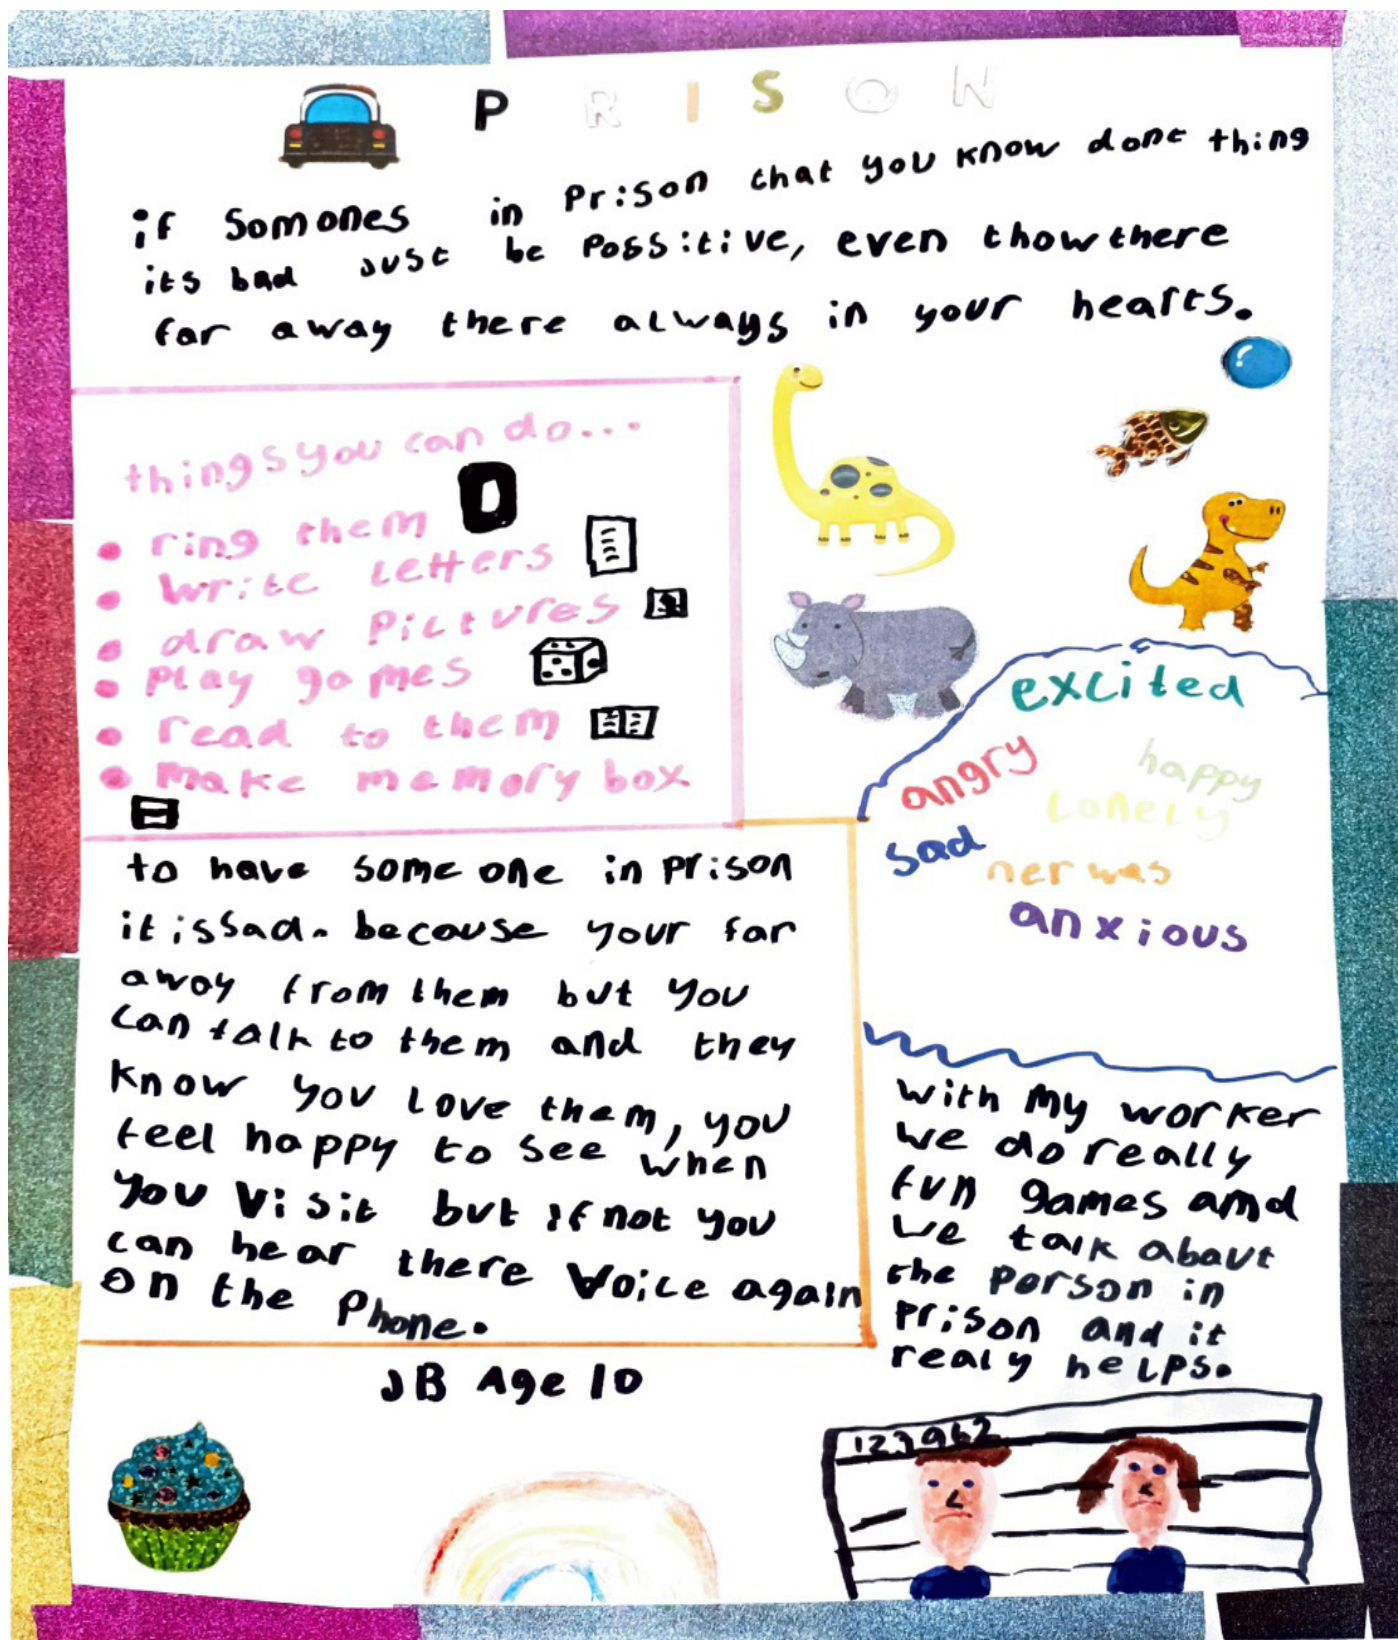 PRISON
if Somones in Prison that you know dont thing
its bad Just be Possitive, even thow there
far away there always in your hearts.
things you can do...
• ring them
• write Letters
• draw Pictures
• PLay games
• read to them
• make memory box
excited
angry
happy
Lonely
sad
nerwas
anxious
to have some one in prison
it is Sad. because your far
away from them but you
can talk to them and they
know you Love them, you
feel happy to see when
you Visit but if not you
can hear there Voice again
on the Phone.
with my worker
we do really
fun games amd
we talk abaut
the porson in
Prison and it
realy heLPs.
JB Age 10
123962